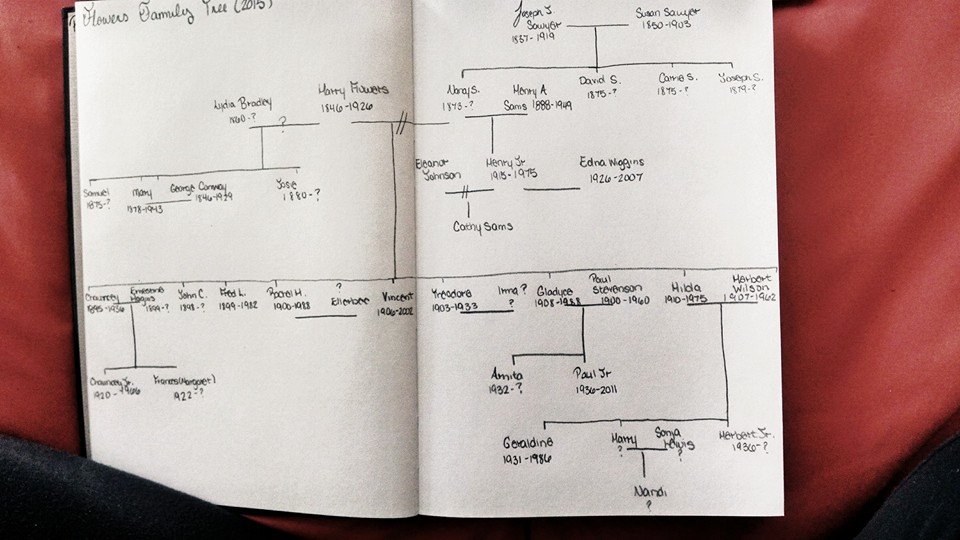 Flowers Family Tree (2015)
Joseph J.
Sawyer
1857-1919
Susan Sawyer
1850-1903
Nora S.
1873-?
Henry A
Sams
1888-1949
David S.
1875-?
Carrie S.
1875-?
Joseph S.
1879-?
Lydia Bradley
1860-?
?
Harry Flowers
1846-1926
Eleanor
Johnson
Henry Jr
1915-1975
Edna Wiggins
1926-2007
Cathy Sams
Samuel
1875-?
Mary
1878-1943
George Conway
1846-1929
Josie
1880-?
Chauncey
1895-1936
Ernestine
1899-?
John C.
1898-?
Fred L.
1899-1982
Rachel H.
1900-1988
?
Ellerbee
Vincent
1906-2002
Theodore
1903-1933
Irma ?
?
Gladyce
1908-1988
Paul
Stevenson
1900-1960
Hilda
1910-1975
Herbert
Wilson
1907-1962
Chauncey Jr.
1920-1966
Frances (Margaret)
1922-?
Annita
1932-?
Paul Jr
1936-2011
Geraldine
1931-1986
Harry
?
Sonja
Lewis
?
Herbert Jr.
1936-?
Nandi
?